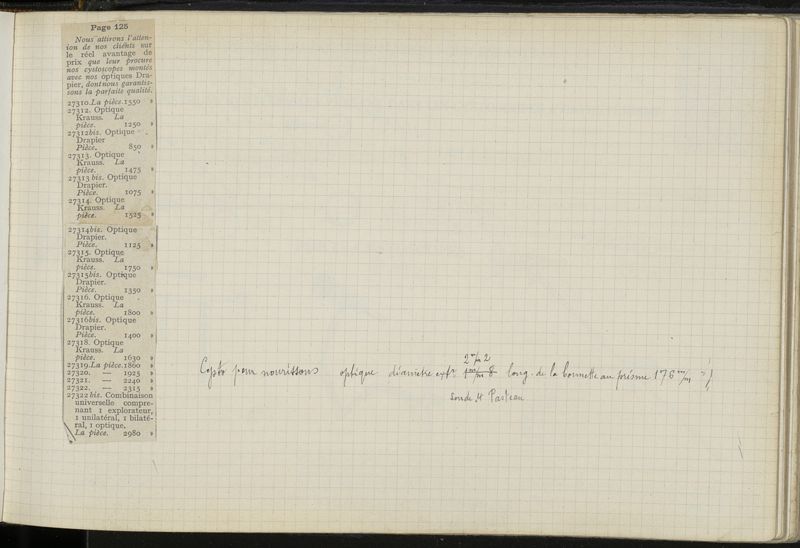 Page 125
Nous attirons l'atten-
ion de nos clients sur
le réel avantage de
prix que leur procure
nos cystoscopes montés
avec nos optiques Dra-
pier, dont nous garantis-
sons la parfaite qualité.
27310. La pièce. 1550 »
27312. Optique
Krauss. La
pièce. 1250 »
27312bis. Optique
Drapier
Pièce. 850 »
27313. Optique
Krauss. La
pièce. 1475 »
27313 bis. Optique
Drapier.
Pièce. 1075 »
27314. Optique
Krauss. La
pièce. 1525 »
27314bis. Optique
Drapier.
Pièce. 1125 »
27315. Optique
Krauss. La
pièce. 1750 »
27315bis. Optique
Drapier.
Pièce. 1350 »
27316. Optique
Krauss. La
pièce. 1800 »
27316bis. Optique
Drapier.
Pièce. 1400 »
27318. Optique
Krauss. La
pièce. 1630 »
27319. La pièce. 1860 »
27320. — 1925 »
27321. — 2240 »
27322. — 2315 »
27322bis. Combinaison
universelle compre-
nant 1 explorateur,
1 unilatéral, 1 bilaté-
ral, 1 optique.
La pièce. 2980 »
2 m/m 2
pour nourrissons optique diamètre extr 1 m/m 8 long. de la bonnette au prisme 176 m/m
sonde Mr Pasteau